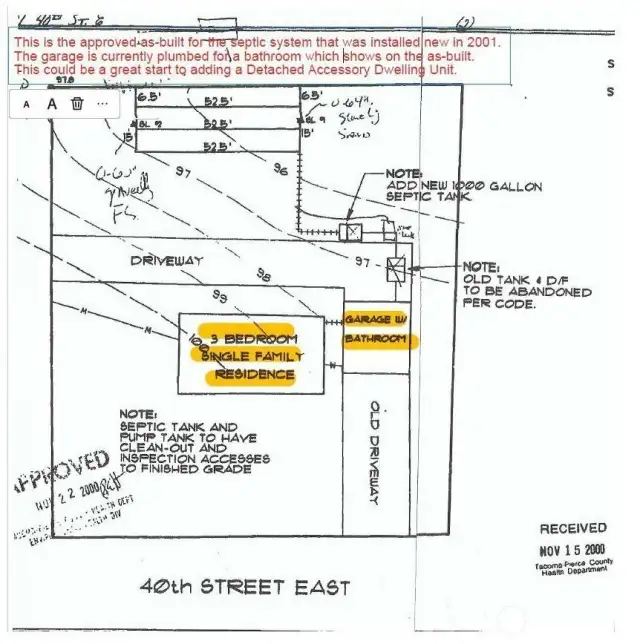 40TH ST. E
(2)
This is the approved as-built for the septic system that was installed new in 2001.
The garage is currently plumbed for a bathroom which shows on the as-built.
This could be a great start to adding a Detached Accessory Dwelling Unit.
S
S
A A ...
6.5' 52.5' 6.5'
SL #2 52.5' SL #1
15' 52.5' 15'
97
96
NOTE:
ADD NEW 1000 GALLON
SEPTIC TANK
DRIVEWAY
97
NOTE:
OLD TANK & D/F
TO BE ABANDONED
PER CODE.
98
99
100
GARAGE W/
BATHROOM
3 BEDROOM
SINGLE FAMILY
RESIDENCE
OLD DRIVEWAY
NOTE:
SEPTIC TANK AND
PUMP TANK TO HAVE
CLEAN-OUT AND
INSPECTION ACCESSES
TO FINISHED GRADE
APPROVED
NOV 22 2000
RECEIVED
NOV 15 2000
Tacoma-Pierce County
Health Department
40th STREET EAST